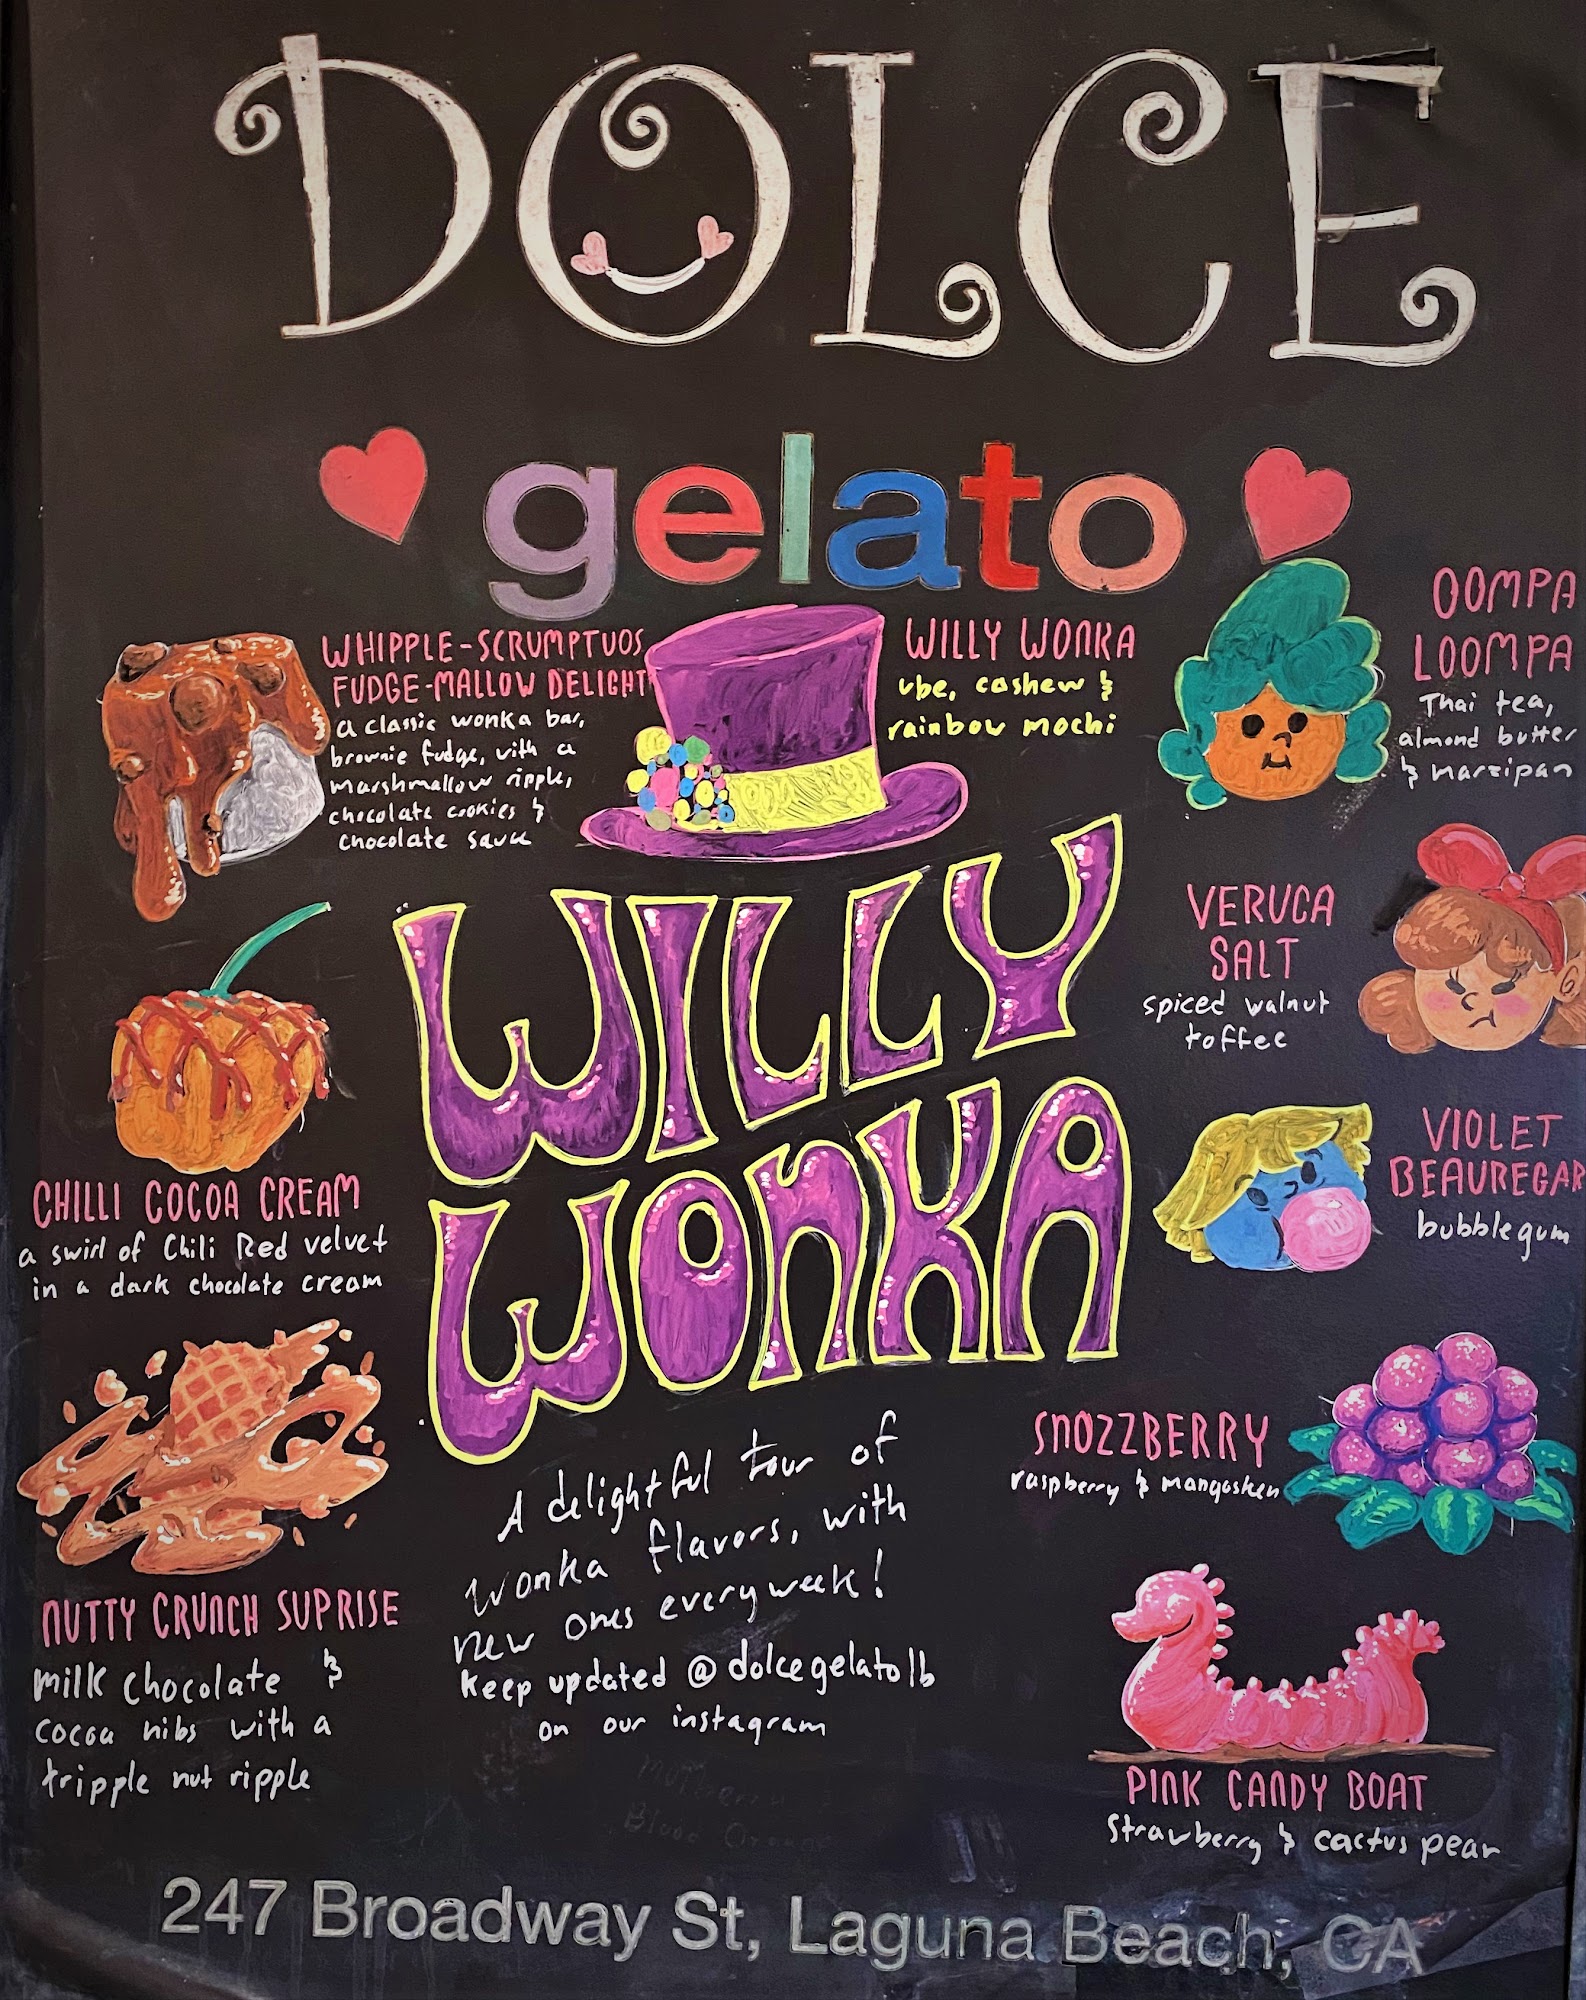 DOLCE
gelato
WHIPPLE-SCRUMPTUOS
FUDGE-MALLOW DELIGHT
a classic wonka bar,
brownie fudge, with a
marshmallow ripple,
chocolate cookies &
chocolate sauce
WILLY WONKA
ube, cashew &
rainbow mochi
OOMPA
LOOMPA
Thai tea,
almond butter
& marzipan
VERUCA
SALT
spiced walnut
toffee
WILLY
WONKA
CHILLI COCOA CREAM
a swirl of Chili Red velvet
in a dark chocolate cream
VIOLET
BEAUREGAR
bubblegum
NUTTY CRUNCH SUPRISE
milk chocolate &
cocoa nibs with a
tripple nut ripple
A delightful tour of
wonka flavors, with
new ones everyweek!
keep updated @dolcegelatolb
on our instagram
SNOZZBERRY
raspberry & mangosteen
PINK CANDY BOAT
Strawberry & cactus pear
Blood Orange
247 Broadway St, Laguna Beach, CA